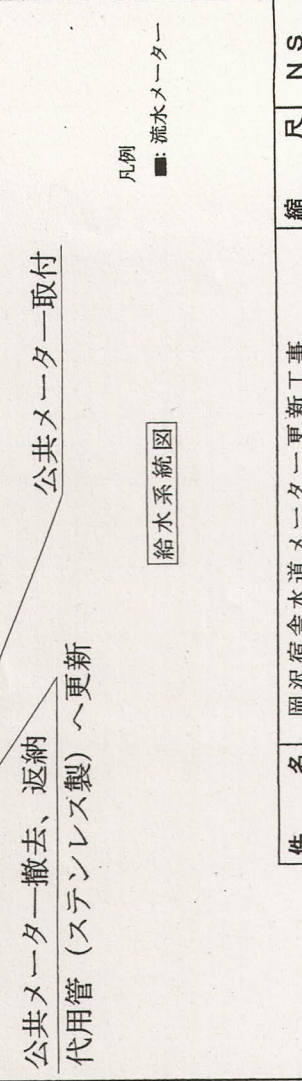 公共メーター撤去、返納
代用管（ステンレス製）へ更新
公共メーター取付
給水系統図
凡例
■: 流水メーター
件 名 岡沢宿舎水道メーター更新工事
縮 尺 NS